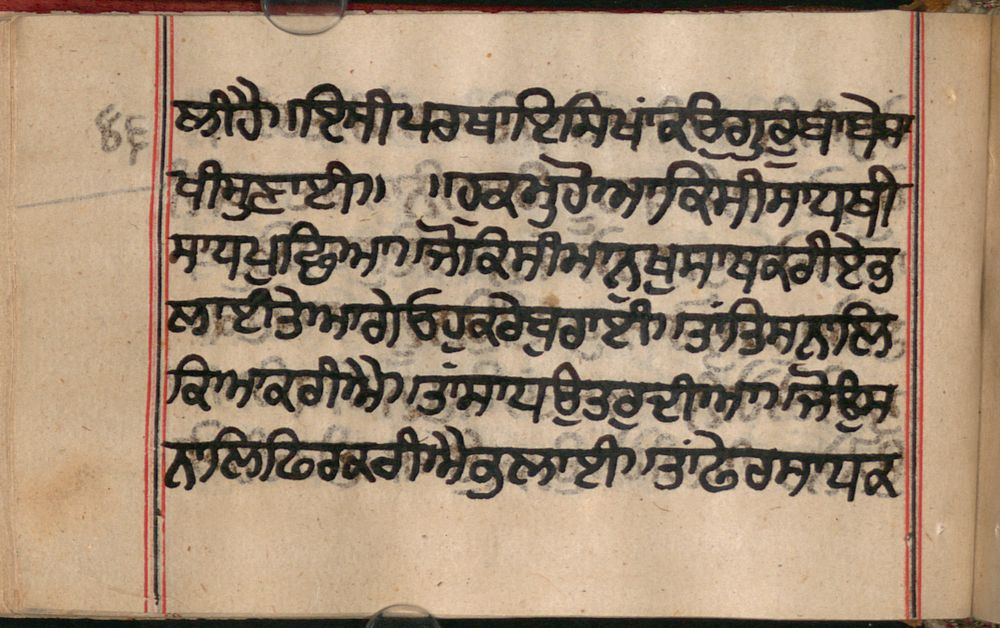 ਲੀਹੈ॥ਇਸੀਪਰਥਾਇਸਿਖਾਂਕਉਗੁਰੁਬਾਬੇਸਾ
ਖੀਸੁਣਾਈ॥ ॥ਹੁਕਮੁਹੋਆਕਿਸੀਸਾਧਥੀ
ਸਾਧਪੁਛਿਆ॥ਜੋਕਿਸੀਮਾਨੁਖੁਸਾਥਕਰੀਏਭ
ਲਾਈਤੇਆਗੇਓਹੁਕਰੇਬੁਰਾਈ॥ਤਾਂਤਿਸਨਾਲਿ
ਕਿਆਕਰੀਐ॥ਤਾਂਸਾਧਉਤਰੁਦੀਆ॥ਜੋਉਸ
ਨਾਲਿਫਿਰਕਰੀਐਭਲਾਈ॥ਤਾਂਫੇਰਸਾਧਕ